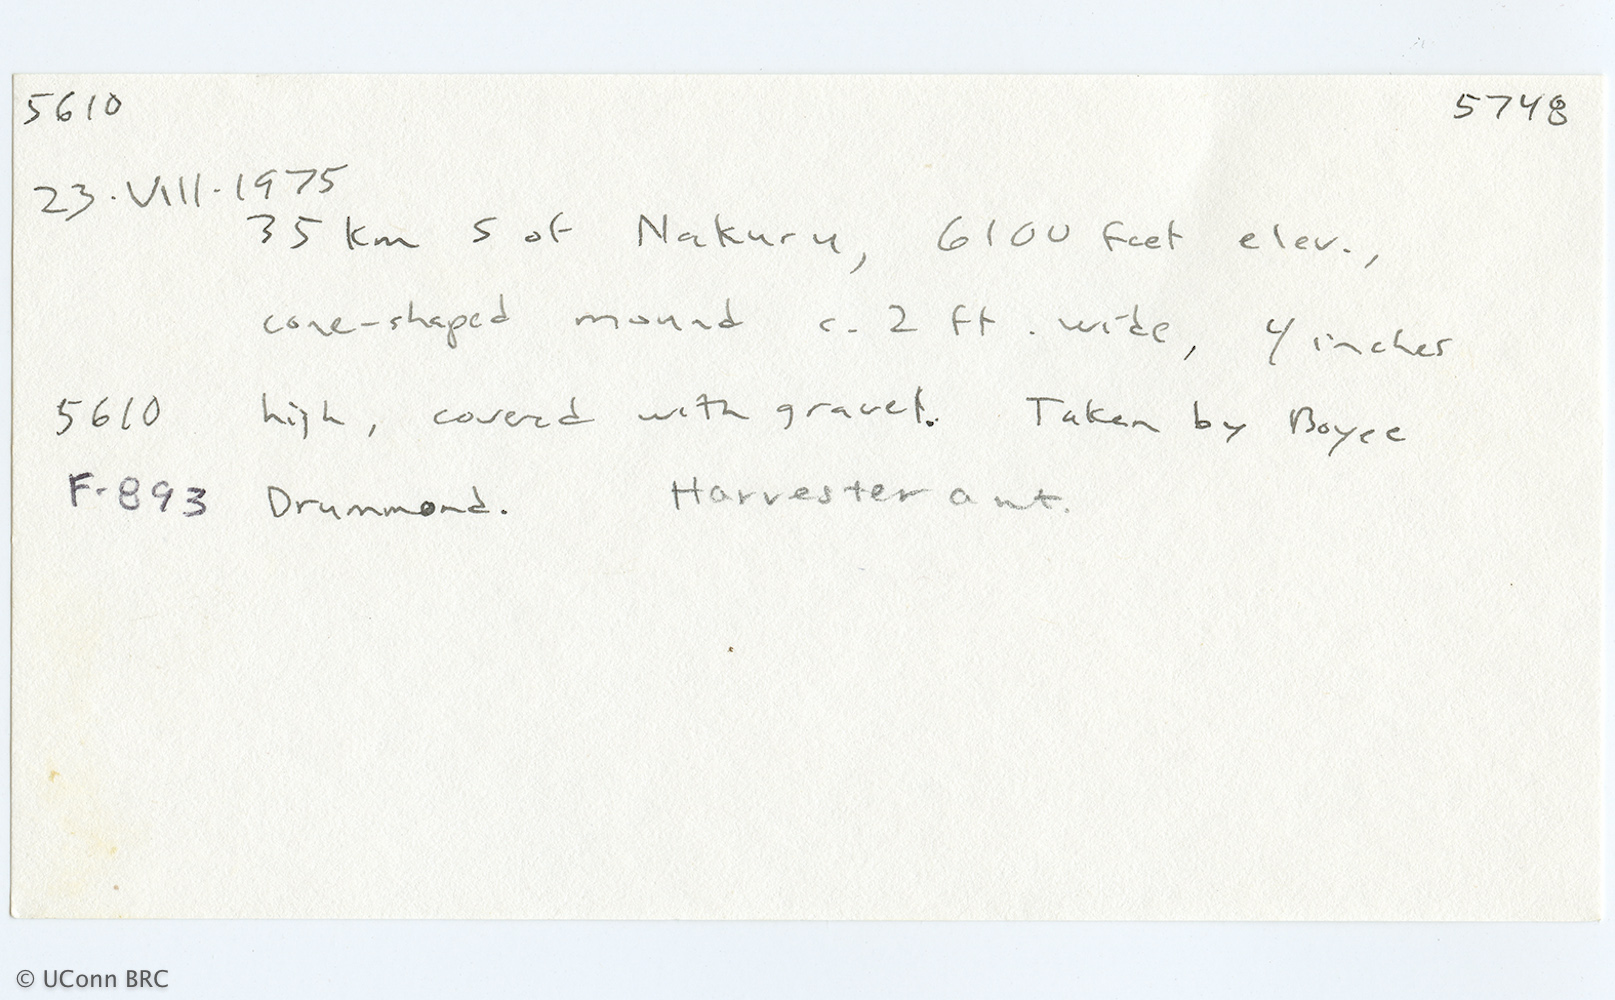 5610 5748
23.VIII.1975
35 km S of Nakuru, 6100 feet elev.,
cone-shaped mound c. 2 ft. wide, 4 inches
5610 high, covered with gravel. Taken by Boyce
F-893 Drummond. Harvester ant.
© UConn BRC